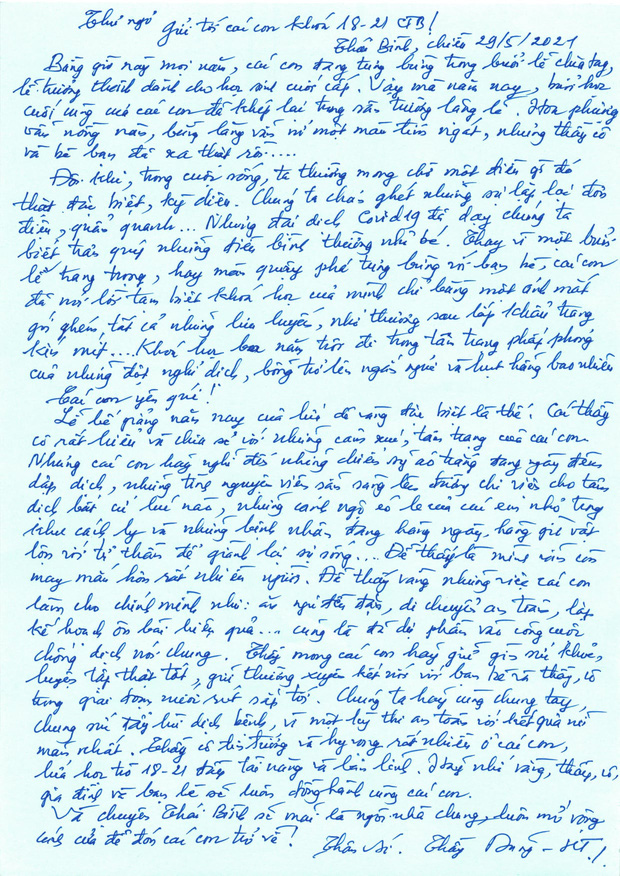 Thư ngỏ
gửi tới các con khoá 18-21 CTB!
Thái Bình, chiều 29/5/2021
Bằng giờ này mọi năm, các con đang tưng bừng trong buổi lễ chia tay,
lễ trưởng thành dành cho học sinh cuối cấp. Vậy mà năm nay, buổi học
cuối cùng của các con đã khép lại trong sân trường lặng lẽ. Hoa phượng
vẫn nồng nàn, bằng lăng vẫn nở một màu tím ngát, nhưng thầy cô
và bè bạn đã xa thật rồi....
Đôi khi, trong cuộc sống, ta thường mong chờ một điều gì đó
thật đặc biệt, kỳ diệu. Chúng ta chán ghét những sự lặp lại đơn
điệu, quẩn quanh... Nhưng đại dịch Covid19 đã dạy chúng ta
biết trân quý những điều bình thường nhỏ bé. Thay vì một buổi
lễ trang trọng, hay màn quậy phá tưng bừng với bạn bè, các con
đã nói lời tạm biệt khoá học của mình chỉ bằng một ánh mắt
gói ghém, tất cả những lưu luyến, nhớ thương sau lớp khẩu trang
kín mít.... Khoá học ba năm trôi đi trong tâm trạng phấp phỏng
của những đợt nghỉ dịch, bỗng trở lên ngắn ngủi và hụt hẫng bao nhiêu
Các con yêu quý!
Lễ bế giảng năm nay của lứa dê vàng đặc biệt là thế. Các thầy
cô rất hiểu và chia sẻ với những cảm xúc, tâm trạng của các con.
Nhưng các con hãy nghĩ đến những chiến sỹ áo trắng đang ngày đêm
dập dịch, những tình nguyện viên sẵn sàng lên đường chi viện cho tâm
dịch bất cứ lúc nào, những cảnh ngộ éo le của các em nhỏ trong
khu cách ly và những bệnh nhân đang hàng ngày, hàng giờ vật
lộn với tử thần để giành lại sự sống.... Để thấy là mình vẫn còn
may mắn hơn rất nhiều người. Để thấy rằng những việc các con
làm cho chính mình như: ăn ngủ đều đặn, di chuyển an toàn, lập
kế hoạch ôn bài hiệu quả... cũng là đã dự phần vào công cuộc
chống dịch nói chung. Thầy mong các con hãy giữ gìn sức khoẻ,
luyện tập thật tốt, giữ thường xuyên kết nối với bạn bè và thầy, cô
trong giai đoạn nước rút sắp tới. Chúng ta hãy cùng chung tay,
chung sức đẩy lùi dịch bệnh, vì một kỳ thi an toàn với kết quả mỹ
mãn nhất. Thầy cô tin tưởng và hy vọng rất nhiều ở các con,
lứa học trò 18-21 đầy tài năng và bản lĩnh. Hãy nhớ rằng, thầy, cô,
gia đình và bạn bè sẽ luôn đồng hành cùng các con.
Và chuyên Thái Bình sẽ mãi là ngôi nhà chung, luôn mở rộng
cánh cửa để đón các con trở về!
Thân ái. Thầy Dũng - HT!